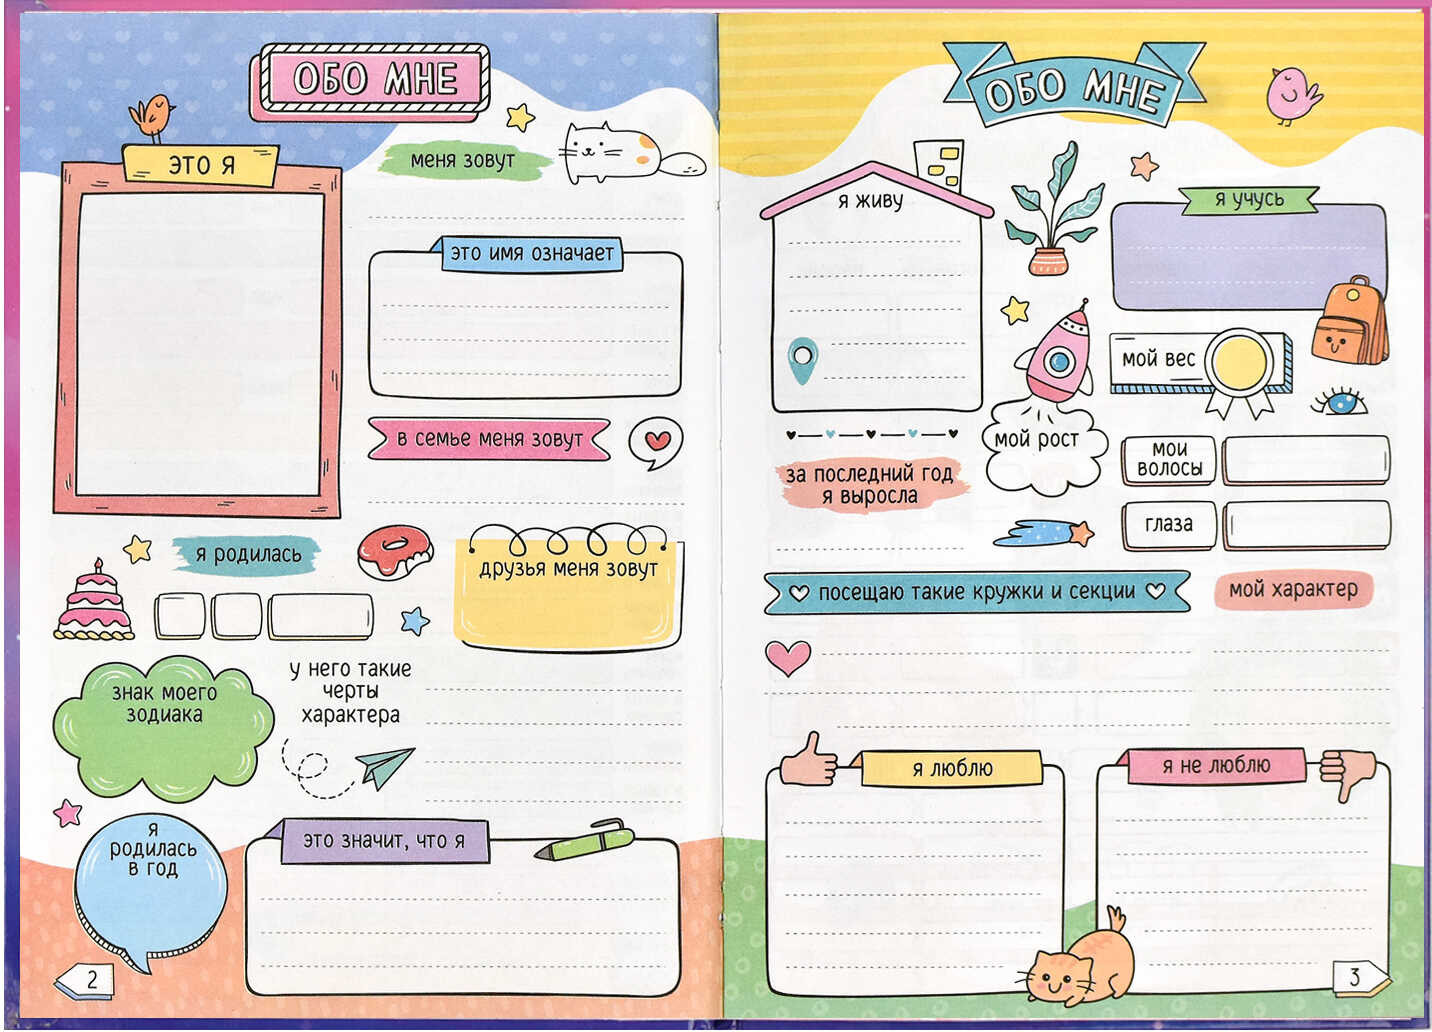 ОБО МНЕ
ЭТО Я
меня зовут
это имя означает
в семье меня зовут
я родилась
друзья меня зовут
знак моего
зодиака
у него такие
черты
характера
я
родилась
в год
это значит, что я
2
ОБО МНЕ
я живу
я учусь
мой вес
мой рост
мои
волосы
глаза
за последний год
я выросла
посещаю такие кружки и секции
мой характер
я люблю
я не люблю
3